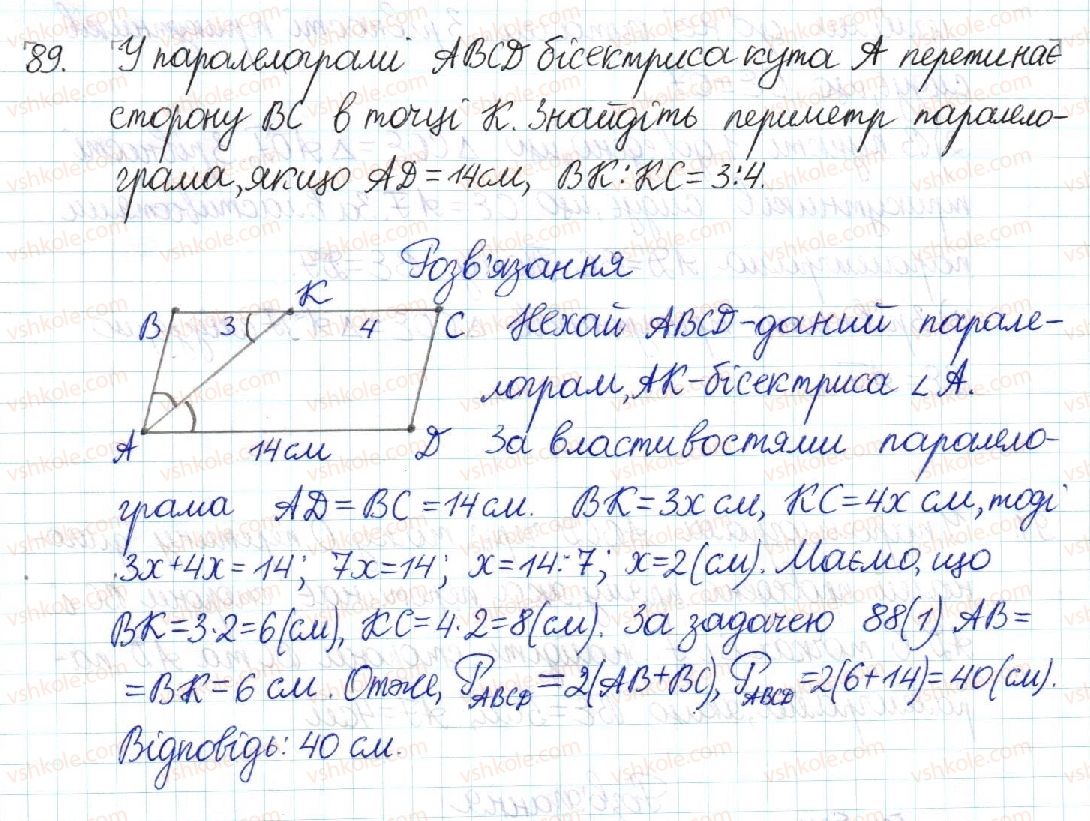 89. У паралелограмі ABCD бісектриса кута A перетинає
сторону BC в точці K. Знайдіть периметр парарело-
грама, якщо AD = 14 см, BK : KC = 3 : 4.
Розв'язання
B 3 K 4 C
A 14 см D
Нехай ABCD - даний парале-
лограм, AK - бісектриса ∠A.
За властивостями парарело-
грама AD = BC = 14 см. BK = 3x см, KC = 4x см, тоді
3x + 4x = 14; 7x = 14; x = 14 : 7; x = 2 (см). Маємо, що
BK = 3 · 2 = 6 (см), KC = 4 · 2 = 8 (см). За задачею 88(1) AB =
= BK = 6 см. Отже, P_ABCD = 2(AB + BC), P_ABCD = 2(6 + 14) = 40 (см).
Відповідь: 40 см.